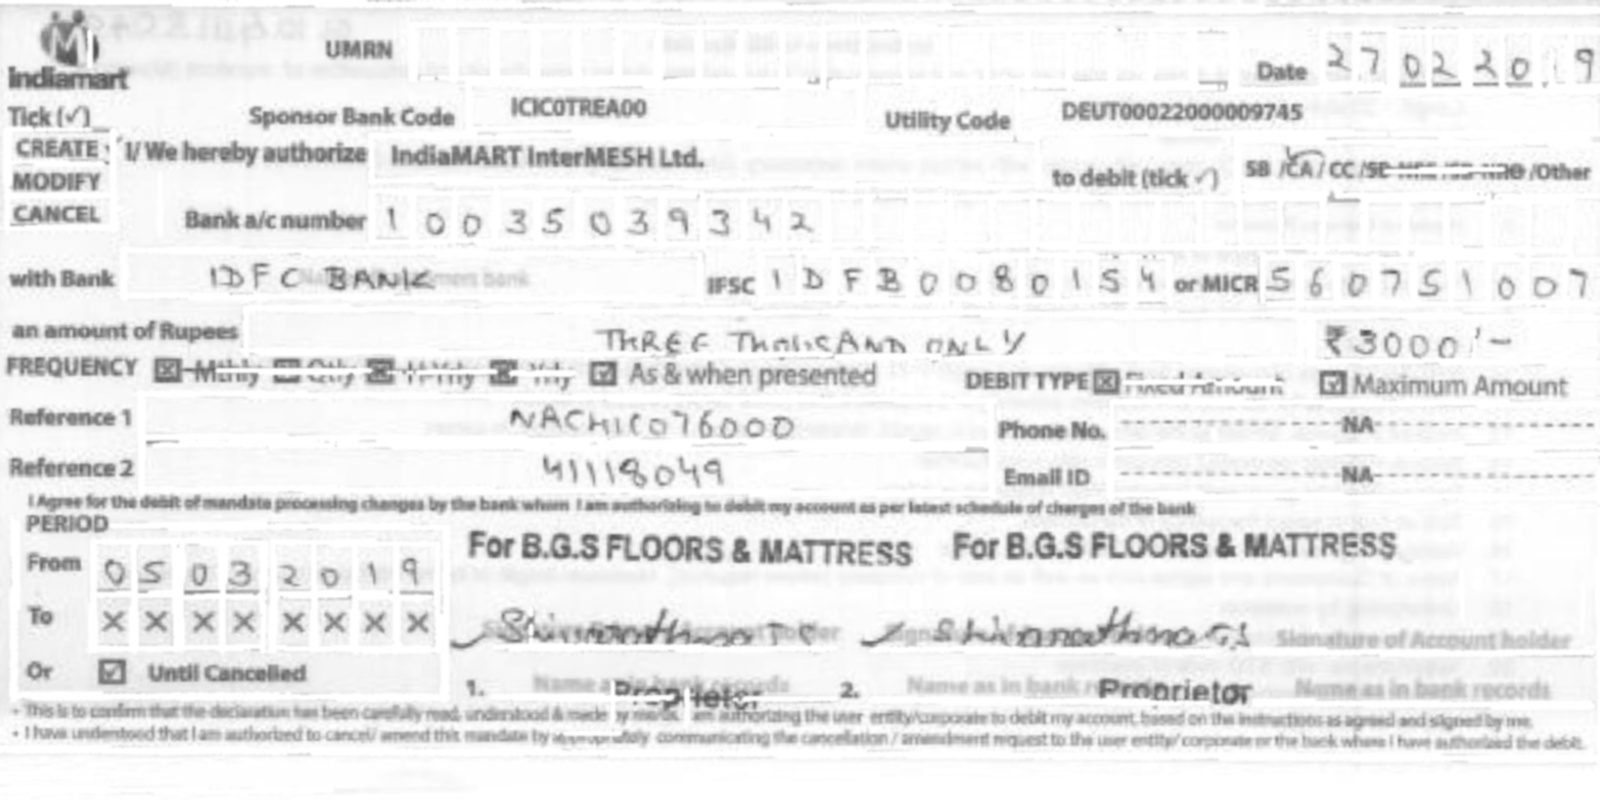 indiamart
UMRN
Date 27022019
Tick (✓) Sponsor Bank Code ICIC0TREA00 Utility Code DEUT00022000009745
CREATE I/ We hereby authorize IndiaMART InterMESH Ltd. to debit (tick ✓) SB /CA / CC /SB-NRE /SB-NRO /Other
MODIFY
CANCEL Bank a/c number 10035039342
with Bank IDFC BANK IFSC IDFB0080154 or MICR 560751007
an amount of Rupees THREE THOUSAND ONLY ₹3000/-
FREQUENCY Mthly Qtly H-Yrly Yrly As & when presented DEBIT TYPE Fixed Amount Maximum Amount
Reference 1 NACHIC076000 Phone No. NA
Reference 2 41118049 Email ID NA
I Agree for the debit of mandate processing changes by the bank whom I am authorizing to debit my account as per latest schedule of charges of the bank
PERIOD
From 05032019
To XXXXXXXX
Or Until Cancelled
For B.G.S FLOORS & MATTRESS For B.G.S FLOORS & MATTRESS
Account holder Signature of Signature of Account holder
1. Name as in bank records 2. Name as in bank records Name as in bank records
Proprietor Proprietor
• This is to confirm that the declaration has been carefully read, understood & made by me/us. I am authorizing the user entity/corporate to debit my account, based on the instructions as agreed and signed by me.
• I have understood that I am authorized to cancel/ amend this mandate by appropriately communicating the cancellation / amendment request to the user entity/ corporate or the bank where I have authorized the debit.